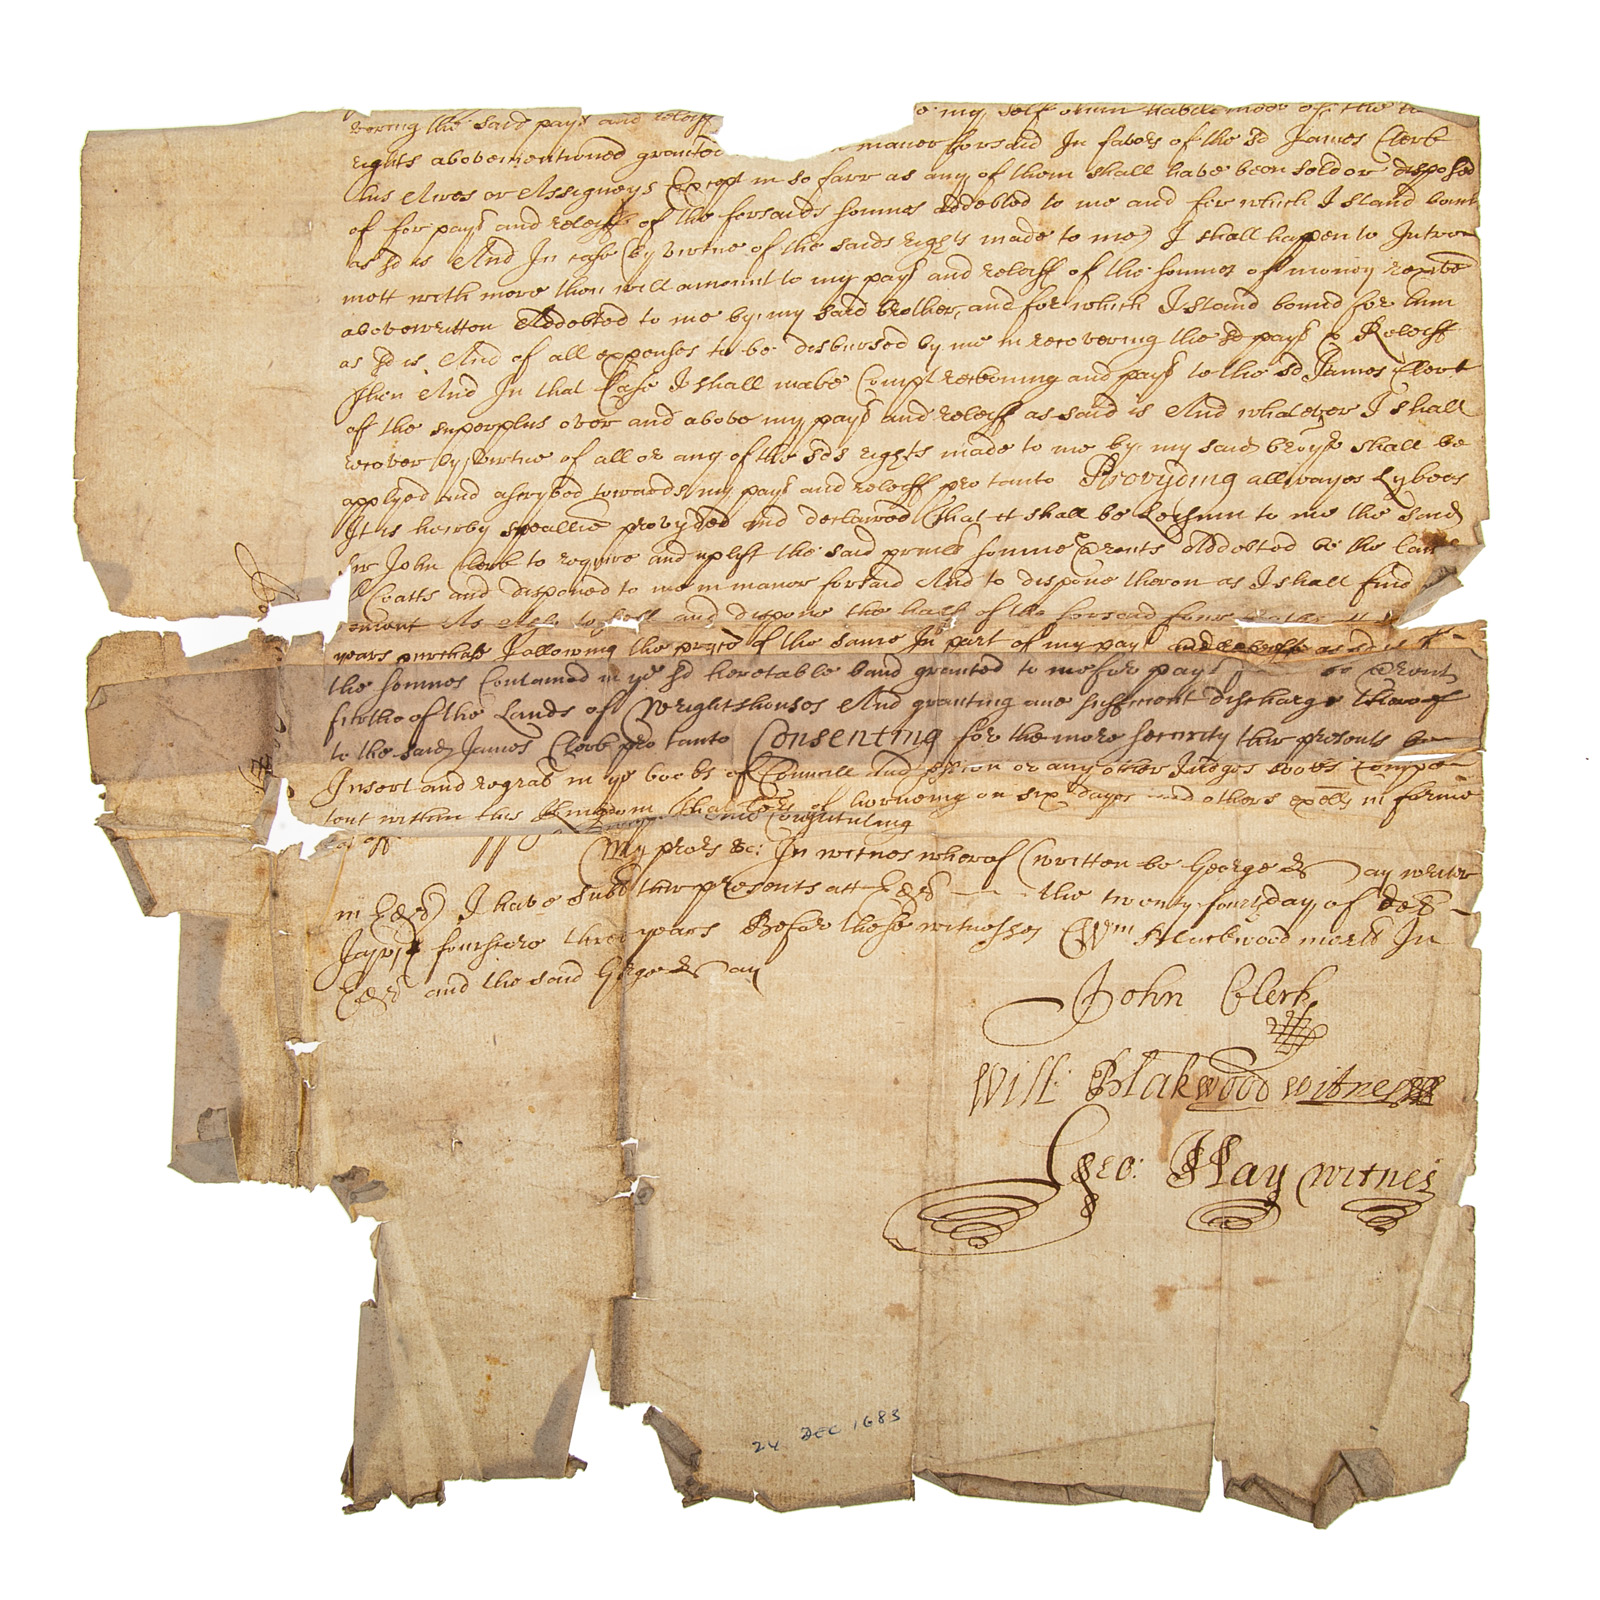 vering the said payt and releiff o my self omn habili modo of the
rights abovementioned granted manor forsaid In favors of the sd James Clerk
his Aires or Assigneys Except in so farr as any of them shall have been sold or disposed
of for payt and releiff of the forsaids sommes addebted to me and for which I stand bound
as sd is And In case (by vertue of the saids rights made to me) I shall happen to Intro
mett with more then will amount to my payt and releiff of the sommes of money
abovewritten Addebted to me by my said brother, and for which I stand bound for him
as sd is, And of all expenses to be disbursed by me in recovering the sd payt & Releiff
Then And In that Case I shall make Compt reckoning and payt to the sd James Clerk
of the superplus over and above my payt and releiff as said is And whatever I shall
recover by vertue of all or any of the sds rights made to me by my said broyr shall be
applyed and ascrybed towards my payt and releiff pro tanto Provyding allwayes Lykees
It is herby speallie provyded and declaired That it shall be Leisum to me the said
Sir John Clerk to require and uplift the said prinll somme & rents Addebted be the
Coatts and disponed to me in manor forsaid And to dispone theron as I shall find
and dispone the half of the forsaid four
years purchass I allowing the pryce of the same In part of my payt and releiff as sd is of
the sommes Contained in ye sd heretable band granted to me for payt
furthe of the Lands of Wrightshouses And granting ane sufficient discharge therof
to the said James Clerk pro tanto Consenting for the more security thir presents be
Insert and regrat in ye books of Councill And session or any other Judges books Compe
tent within this Kingdom That of horneing on six dayes and others exells in forme
Constituting
My prors &c: In witnes wherof (written be George Hay writer
in Edr) I have subt thir presents att Edr the twenty fourt day of decr
Jajvjc fourscore three years Before these witnesses Wm Blackwood mert In
Edr and the said George Hay
John Clerk
Will: Blakwood witness
Geo: Hay witnes
24 DEC 1683